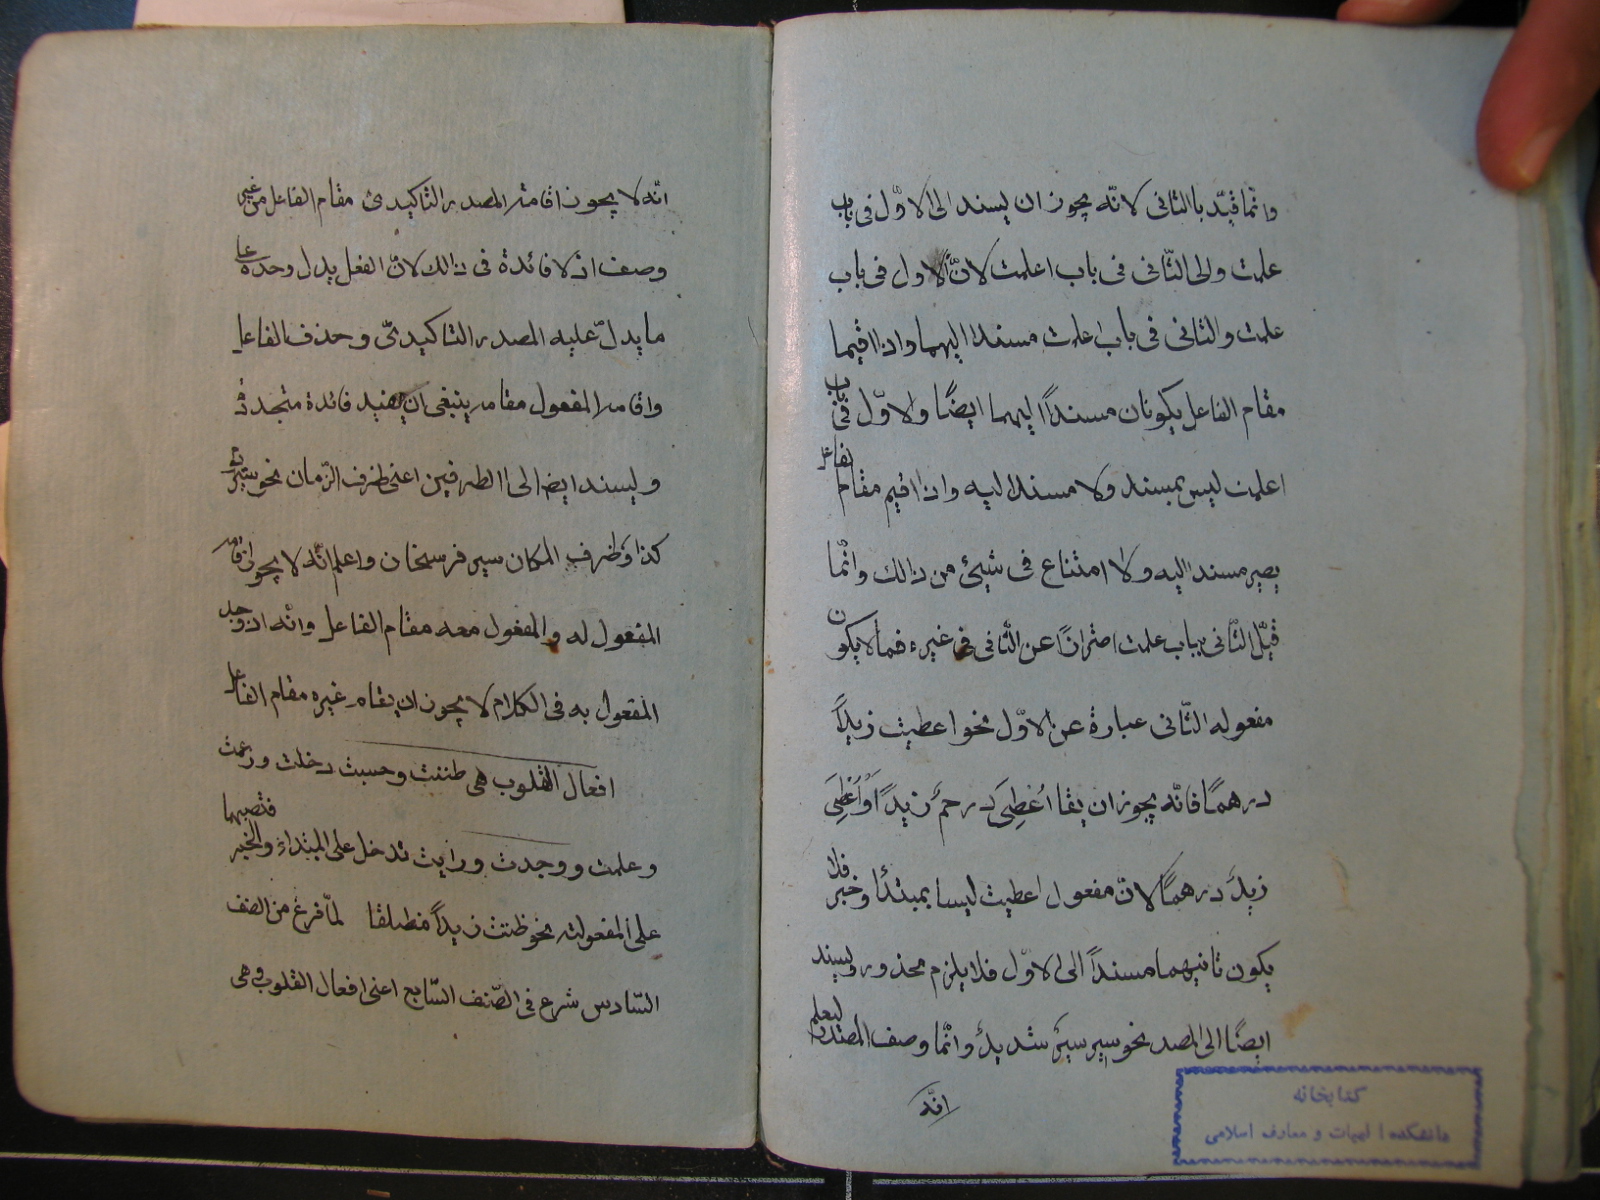 وانما قيد بالثانى لانّه يجوز ان يسند الى الاوّل فى باب
علمت والى الثّانى فى باب اعلمت لانّ الاول فى باب
علمت والثانى فى باب اعلمت مسندا اليهما واذا اقيما
مقام الفاعل يكونان مسنداً اليهما ايضًا والاوّل فى باب
اعلمت ليس بمسند ولا مسندا ليه واذا اقيم مقام الفاعل
يصير مسند اليه ولا امتناع فى شيئ من ذالك وانّما
قيّد الثّانى بباب علمت احترازًا عن الثّانى فى غيره فما لا يكون
مفعوله الثّانى عبارة عن الاوّل نحو اعطيت زيداً
درهمًا فانّه يجوز ان يقا اُعْطِىَ درهمٌ زيدًا وَاُعْطِىَ
زيدٌ درهمًا لانّ مفعول اعطيت ليسا بمبتدأ وخبر فلا
يكون ثانيهما مسنداً الى الاوّل فلا يلزم محذور ويسند
ايضًا الى المصدر نحو سير سيرٌ شديدٌ وانّما وصف المصدر ليعلم
انّه
كتابخانه
دانشكده الهيات و معارف اسلامى
انّه لا يجوز اقامة المصدر التاكيدى مقام الفاعل من غير
وصف اذ لا فائدة فى ذالك لانّ الفعل يدل وحده على
ما يدلّ عليه المصدر التاكيدىّ وحذف الفاعل
واقامة المفعول مقامه ينبغى ان يفيد فائدة متجددة
ويسند ايضا الى الظرفين اعنى ظرف الزّمان نحو سير
كذا وظرف المكان سير فرسخان واعلم انّه لا يجوز اقامة
المفعول له والمفعول معه مقام الفاعل وانّه اذ وجد
المفعول به فى الكلام لا يجوز ان يقام غيره مقام الفاعل
افعال القلوب هى ظننت وحسبت وخلت وزعمت
وعلمت ووجدت ورايت تدخل على المبتداء والخبر فتصبهما
على المفعولية نحو ظننت زيداً منطلقا لمّا فرغ من الصنف
السّادس شرع فى الصّنف السّابع اعنى افعال القلوب وهى